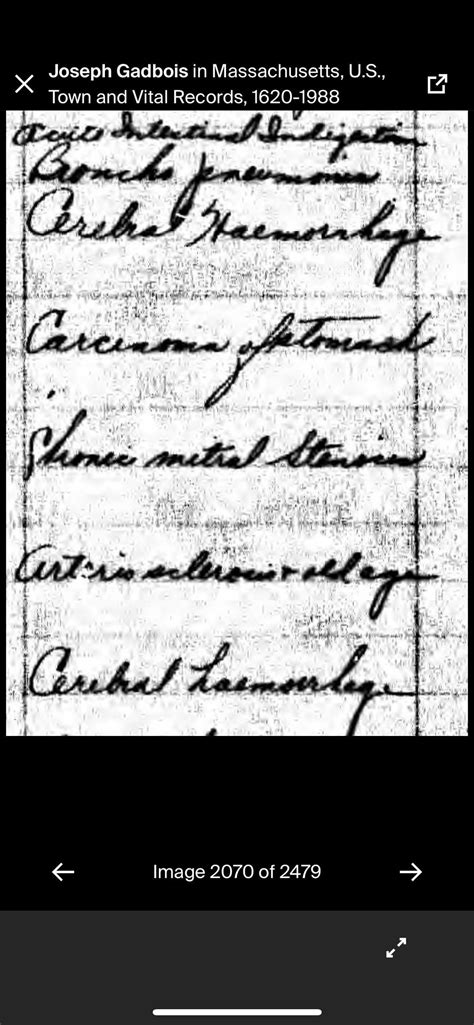 Joseph Gadbois in Massachusetts, U.S.,
Town and Vital Records, 1620-1988
Acute Intestinal Indigestion
Broncho pneumonia
Cerebral Haemorrhage
Carcinoma of stomach
Chronic mitral Stenosis
Arterio sclerosis + old age
Cerebral haemorrhage
Image 2070 of 2479